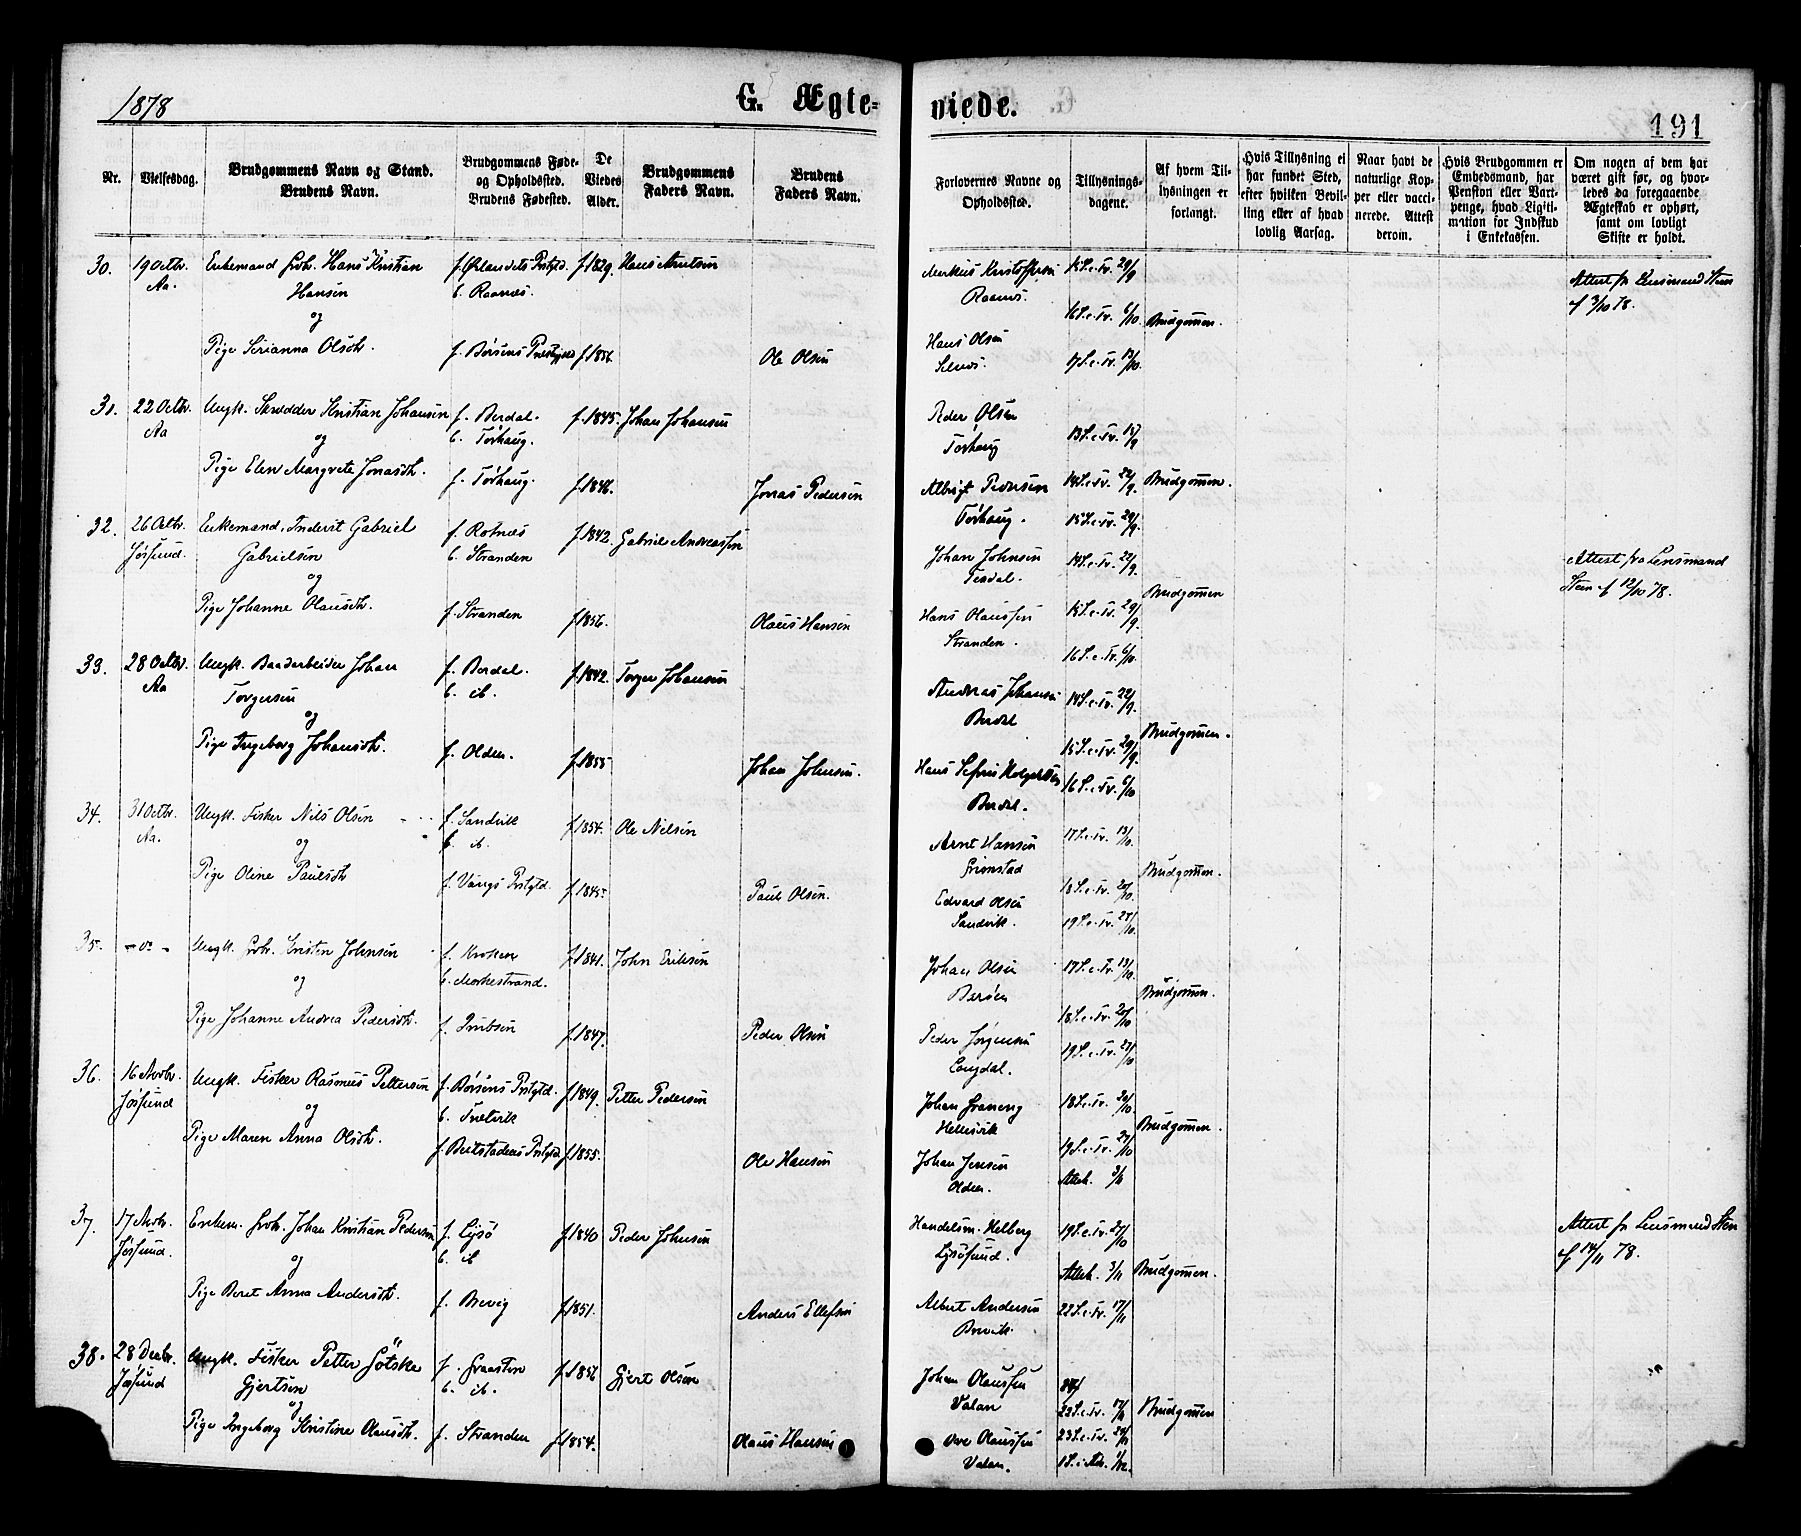 1878
G. Ægte=
viede.
191
Nr.
Vielsesdag.
Brudgommens Navn og Stand.
Brudens Navn.
Brudgommens Føde-
og Opholdssted.
Brudens Fødested.
De
Viedes
Alder.
Brudgommens
Faders Navn.
Brudens
Faders Navn.
Forlovernes Navne og
Opholdssted.
Tillysnings-
dagene.
Af hvem Til-
lysningen er
forlangt.
Hvis Tillysning ei
har fundet Sted,
efter hvilken Bevil-
ling eller af hvad
lovlig Aarsag.
Naar havt de
naturlige Kop-
per eller vacci-
nerede. Attest
derom.
Hvis Brudgommen er
Embedsmand, har
Pension eller Vart-
penge, hvad Ligiti-
mation for Indskud
i Enkekassen.
Om nogen af dem har
været gift før, og hvor-
ledes da foregaaende
Ægteskab er ophørt,
samt om lovligt
Skifte er holdt.
30. 19 Octbr. Enkemand Hans Kristian f. Ørlandets Prstgjd. f. 1829.
Aa. Hansen b. Raanæs.
og
Pige Serianna Olsdtr. f. Børsens f. 1856. Ole Olsen
Markus Kristoffersen 15 S. e. Tr. 29/9
Raanæs.
16 S. e. Tr. 6/10. Brudgommen.
Hans Olsen
17 S. e. Tr. 13/10.
Attest fra Lensmand Steen
af 3/10 78.
31. 22 Octbr. Ungk. Skrædder Kristian Johansen f. Berdal. f. 1845. Johan Johansen
Aa og b. Tørhaug.
Pige Elen Margrete Jonasdtr. f. Tørhaug. f. 1846. Jonas Pedersen
Peder Olsen
Tørhaug 13 S. e. Tr. 15/9
Albrigt Pedersen 14 S. e. Tr. 22/9. Brudgommen.
Tørhaug. 15 S. e. Tr. 29/9.
32. 26 Octbr. Enkemand, Inderst Gabriel f. Rotnæs f. 1842. Gabriel Andreassen
Jøssund. Gabrielsen b. Stranden
og
Pige Johanne Olausdtr. f. Stranden f. 1856. Olaus Hansen
Johan Johnsen 14 S. e. Tr. 22/9.
Teodal. Brudgommen
Hans Olaussen 15 S. e. Tr. 29/9.
Stranden. 16 S. e. Tr. 6/10.
Attest fra Lensmand
Steen af 12/10 78.
33. 28 Octbr. Ungk. Baadarbeider Johan f. Berdal. f. 1842. Torger Johansen
Aa Torgersen b. ib.
og
Pige Ingeborg Johansdtr. f. Olden. f. 1855 Johan Johnsen.
Andreas Johansen 14 S. e. Tr. 22/9.
Berdal Brudgommen.
15 S. e. Tr. 29/9.
Hans 16 S. e. Tr. 6/10
Berdal.
34. 31 Octbr. Ungk. Fisker Nils Olsen f. Sandvik f. 1854. Ole Nilsen
Aa. og b. ib.
Pige Oline Paulsdtr f. Vangs Prstgjd. f. 1845. Paul Olsen.
Arnt Hansen 17 S. e. Tr. 13/10.
Grimstad Brudgommen.
Edvard Olsen 18 S. e. Tr. 20/10.
Sandvik. 19 S. e. Tr. 27/10.
35. - o - Ungk. Kristen Johnsen f. Kroken f. 1841. John Eriksen
og b. Morkestrand.
Pige Johanne Andrea Pedersdtr. f. f. 1847. Peder Olsen
Johan Olsen 17 S. e. Tr. 13/10.
Brudgommen.
18 S. e. Tr. 20/10
Peder Jørgensen
Langdal. 19 S. e. Tr. 27/10
36. 16 Novbr. Ungk. Fisker Rasmus Pettersen f. Børsens Prstgjd. f. 1849. Petter Pedersen
Jøssund og b.
Pige Maren Anna Olsdtr. f. Beitstadens Prstgjd f. 1855. Ole Hansen
Johan Graneng 18 S. e. Tr. 20/10
Hellesvik Brudgommen.
19 S. e. Tr. 27/10
Johan Jensen
Olden. Alleh. 3/11
37. 17 Novbr. Enkem. Johan Kristian Pedersen f. Lysø f. 1840 Peder Johnsen
Jøssund. og b. ib
Pige Beret Anna Andersdtr. f. Brevig f. 1851. Anders Ellefsen
Handelsm. Helberg 19 S. e. Tr. 27/10
Lysøsund.
Alleh. 3/11 Brudgommen.
Albert Andersen 22 S. e. Tr. 17/11
Brevik.
Attest fra Lensmand Steen
af 14/11 78.
38. 28 Decbr. Ungk. Fisker Petter Götske f. Graasten f. 1856 Gjert Olsen
Jøssund Gjertsen b. ib.
og
Pige Ingeborg Kristine Olausdtr. f. Stranden f. 1854. Olaus Hansen
Johan Olaussen
Valan 22 S. e. Tr. 17/11 Brudgommen
Ove Olaussen 23 S. e. Tr. 24/11
Valan. 1 S. i Adv. 1/12.